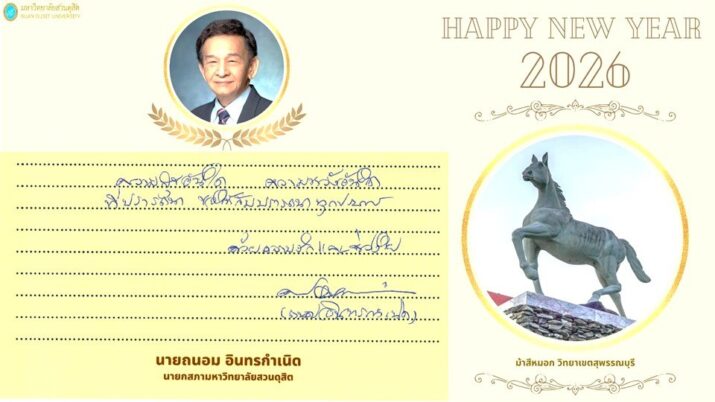 มหาวิทยาลัยสวนดุสิต
SUAN DUSIT UNIVERSITY
HAPPY NEW YEAR
2026
ความ ความหวังอันใด
ที่ปรารถนา ขอให้สมปรารถนาทุกประการ
ด้วยความรักและห่วงใย
นายถนอม อินทรกำเนิด
นายกสภามหาวิทยาลัยสวนดุสิต
ม้าสีหมอก วิทยาเขตสุพรรณบุรี